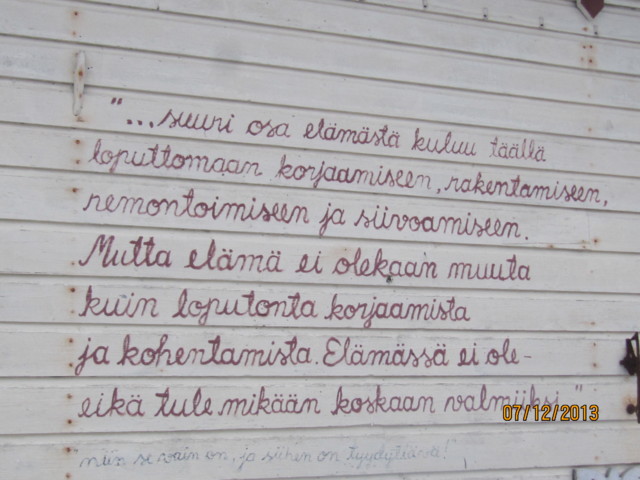 "...suuri osa elämästä kuluu täällä
loputtomaan korjaamiseen, rakentamiseen,
remontoimiseen ja siivoamiseen.
Mutta elämä ei olekaan muuta
kuin loputonta korjaamista
ja kohentamista. Elämässä ei ole-
eikä tule mikään koskaan valmiiksi."
07/12/2013
niin se vain on, ja siihen on tyydyttävä!